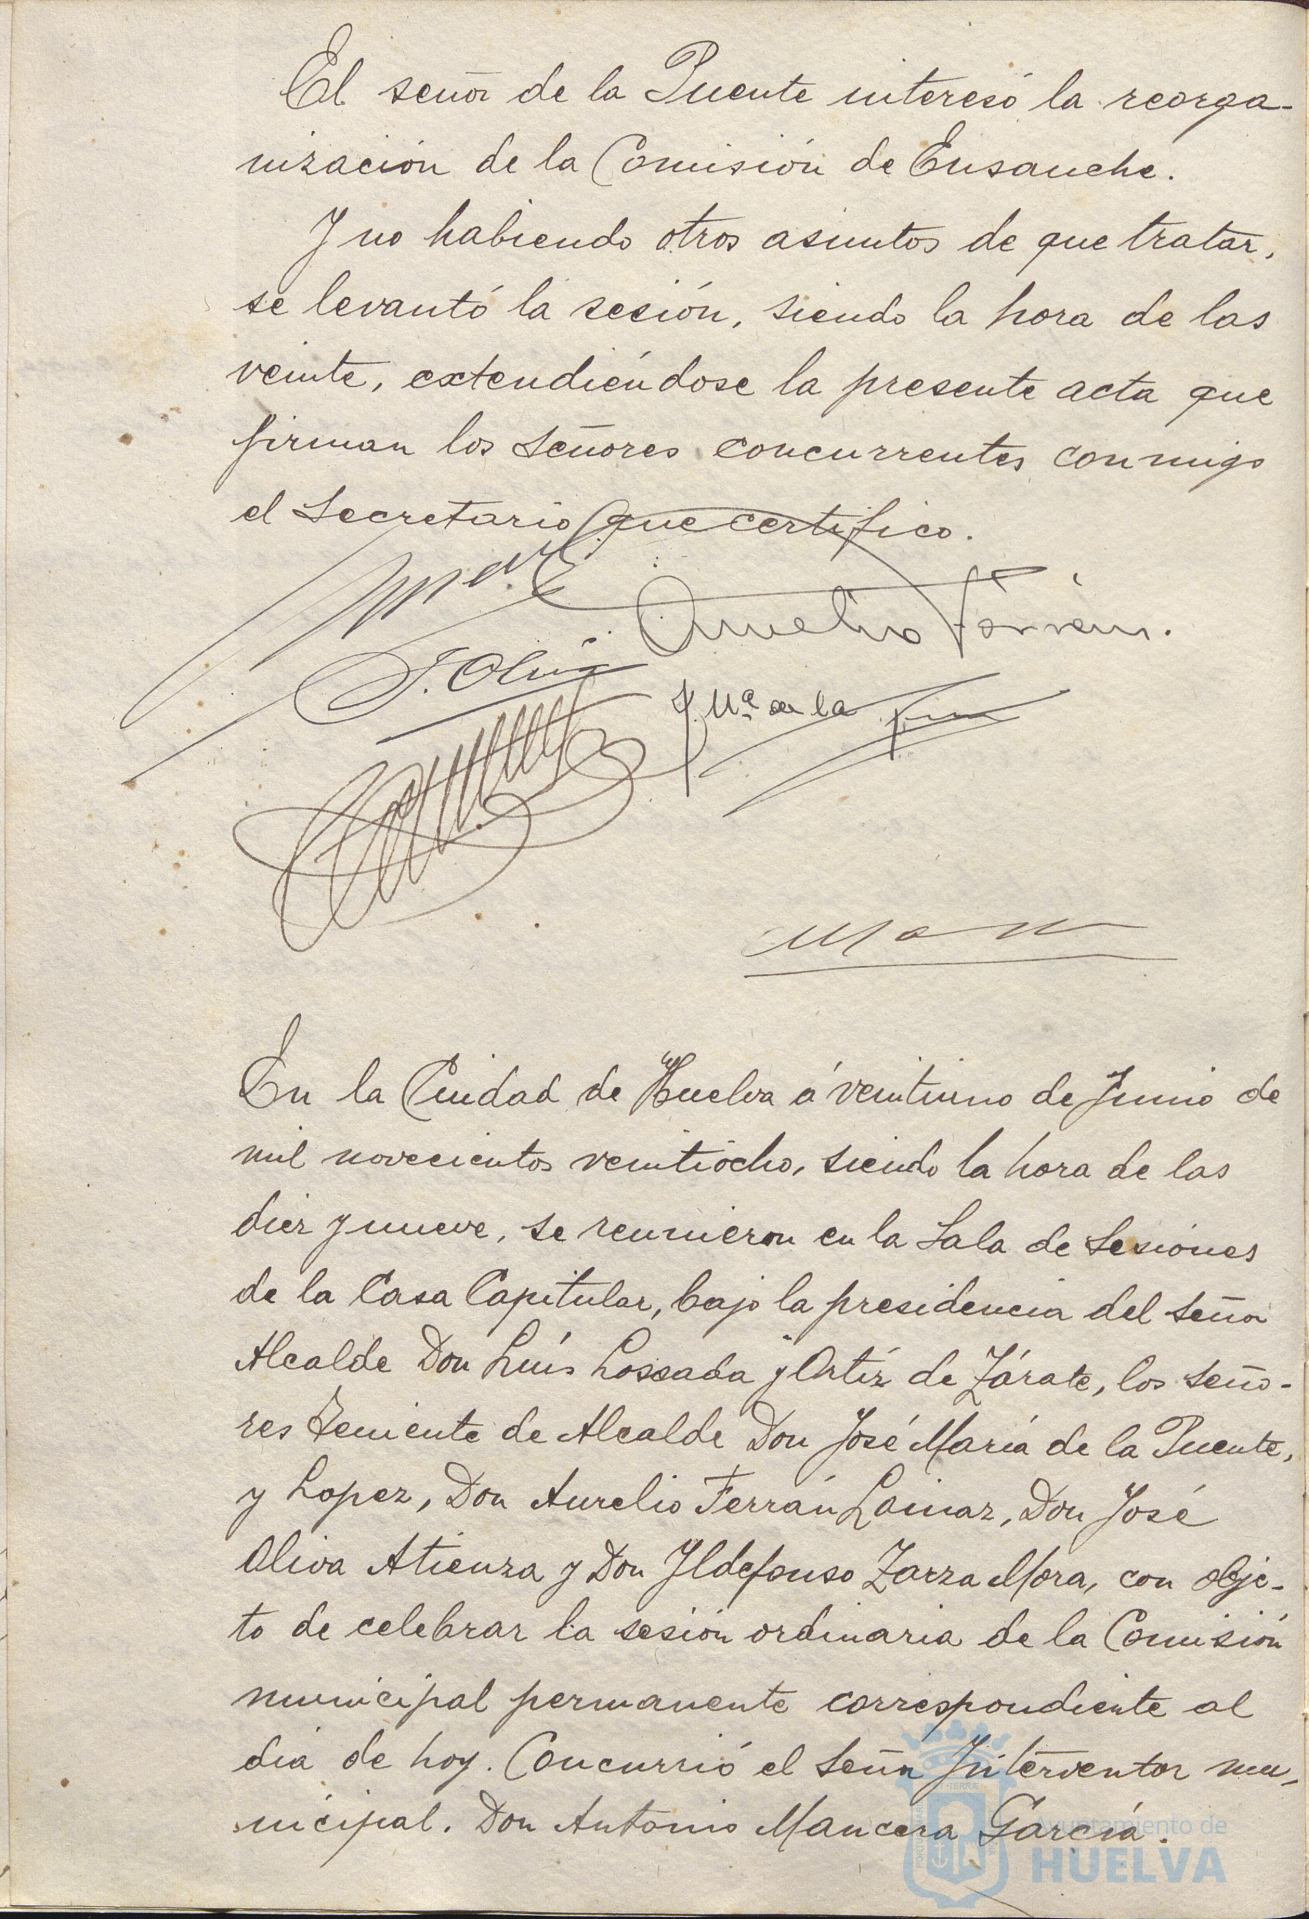 El señor de la Puente interesó la reorga-
nización de la Comisión de Ensanche.
Y no habiendo otros asuntos de que tratar,
se levantó la sesión, siendo la hora de las
veinte, extendiéndose la presente acta que
firman los señores concurrentes conmigo
el Secretario que certifico.
Aurelio Ferrán.
J. Oliva
J. Mª de la
En la Ciudad de Huelva á veintiuno de Junio de
mil novecientos veintiocho, siendo la hora de las
diez y nueve, se reunieron en la Sala de Sesiones
de la Casa Capitular, bajo la presidencia del señor
Alcalde Don Luís Lossada y Ortíz de Zárate, los seño-
res Teniente de Alcalde Don José María de la Puente,
y Lopez, Don Aurelio Ferrán Loinaz, Don José
Oliva Atienza y Don Yldefonso Zarza Mora, con obje-
to de celebrar la sesión ordinaria de la Comisión
municipal permanente correspondiente al
día de hoy. Concurrió el Señor Interventor mu-
nicipal. Don Antonio Mancera García.
Ayuntamiento de
HUELVA